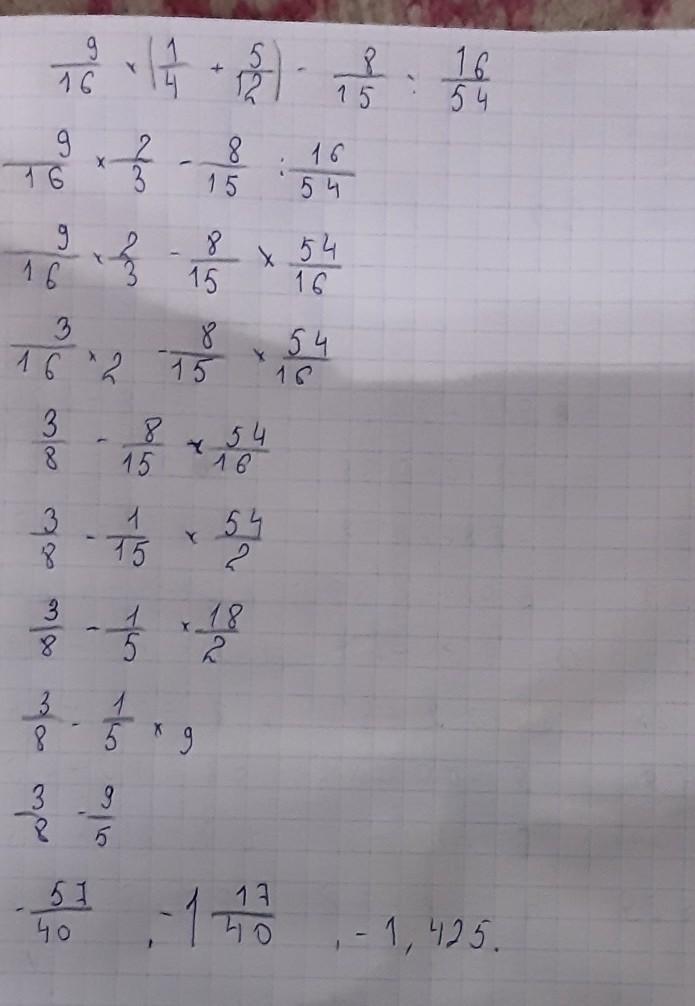 9/16 × (1/4 + 5/12) - 8/15 : 16/54
9/16 × 2/3 - 8/15 : 16/54
9/16 × 2/3 - 8/15 × 54/16
3/16 × 2 - 8/15 × 54/16
3/8 - 8/15 × 54/16
3/8 - 1/15 × 54/2
3/8 - 1/5 × 18/2
3/8 - 1/5 × 9
3/8 - 9/5
- 57/40 , -1 17/40 , -1,425.